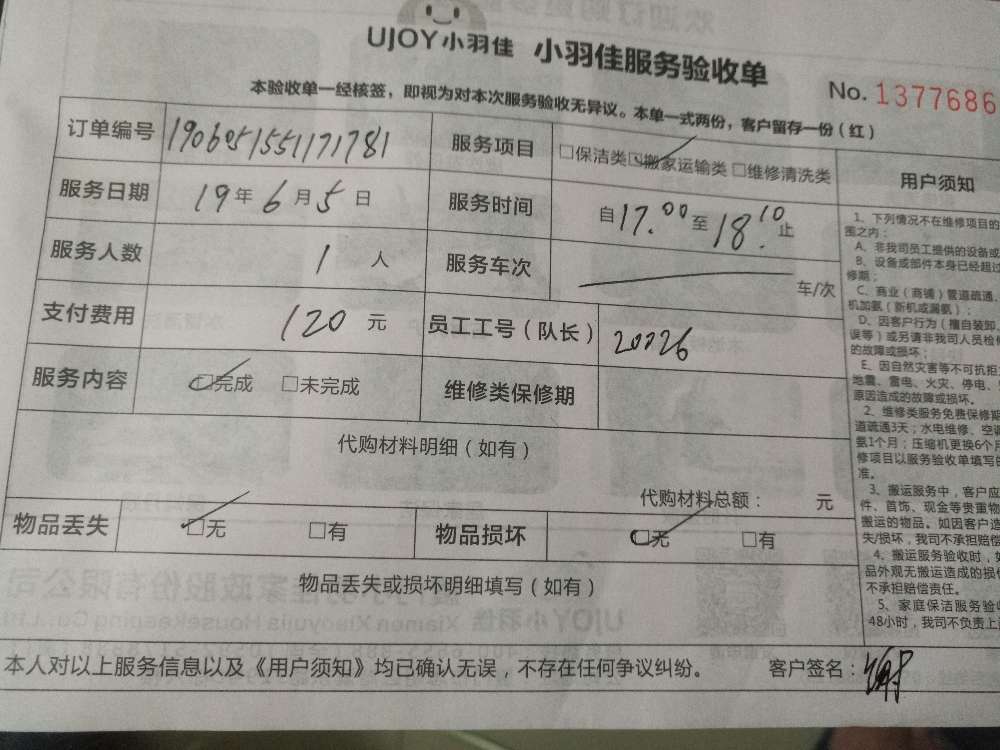 UJOY小羽佳 小羽佳服务验收单
No. 1377686
本验收单一经核签，即视为对本次服务验收无异议。本单一式两份，客户留存一份（红）
订单编号 1906051551171781 服务项目 □保洁类 ☑搬家运输类 □维修清洗类
服务日期 19年6月5日 服务时间 自17.00至18.10止
服务人数 1人 服务车次 车/次
支付费用 120元 员工工号（队长） 20226
服务内容 ☑完成 □未完成 维修类保修期
代购材料明细（如有）
代购材料总额： 元
物品丢失 ☑无 □有 物品损坏 ☑无 □有
物品丢失或损坏明细填写（如有）
本人对以上服务信息以及《用户须知》均已确认无误，不存在任何争议纠纷。 客户签名：
用户须知
1、下列情况不在维修项目的
围之内：
A、非我司员工提供的设备或
B、设备或部件本身已经超过
修期；
C、商业（商铺）管道疏通、
机加氨（新机或漏氨）；
D、因客户行为（擅自装卸
误等）或另请非我司人员检修
的故障或损坏；
E、因自然灾害等不可抗拒
地震、雷电、火灾、停电、
原因造成的故障或损坏。
2、维修类服务免费保修期
道疏通3天；水电维修、空调
氨1个月；压缩机更换6个月
修项目以服务验收单填写的
准。
3、搬运服务中，客户应
件、首饰、现金等贵重物
搬运的物品。如因客户造
失/损坏，我司不承担赔偿
4、搬运服务验收时，如
品外观无搬运造成的损伤
不承担赔偿责任。
5、家庭保洁服务验收
48小时，我司不负责上